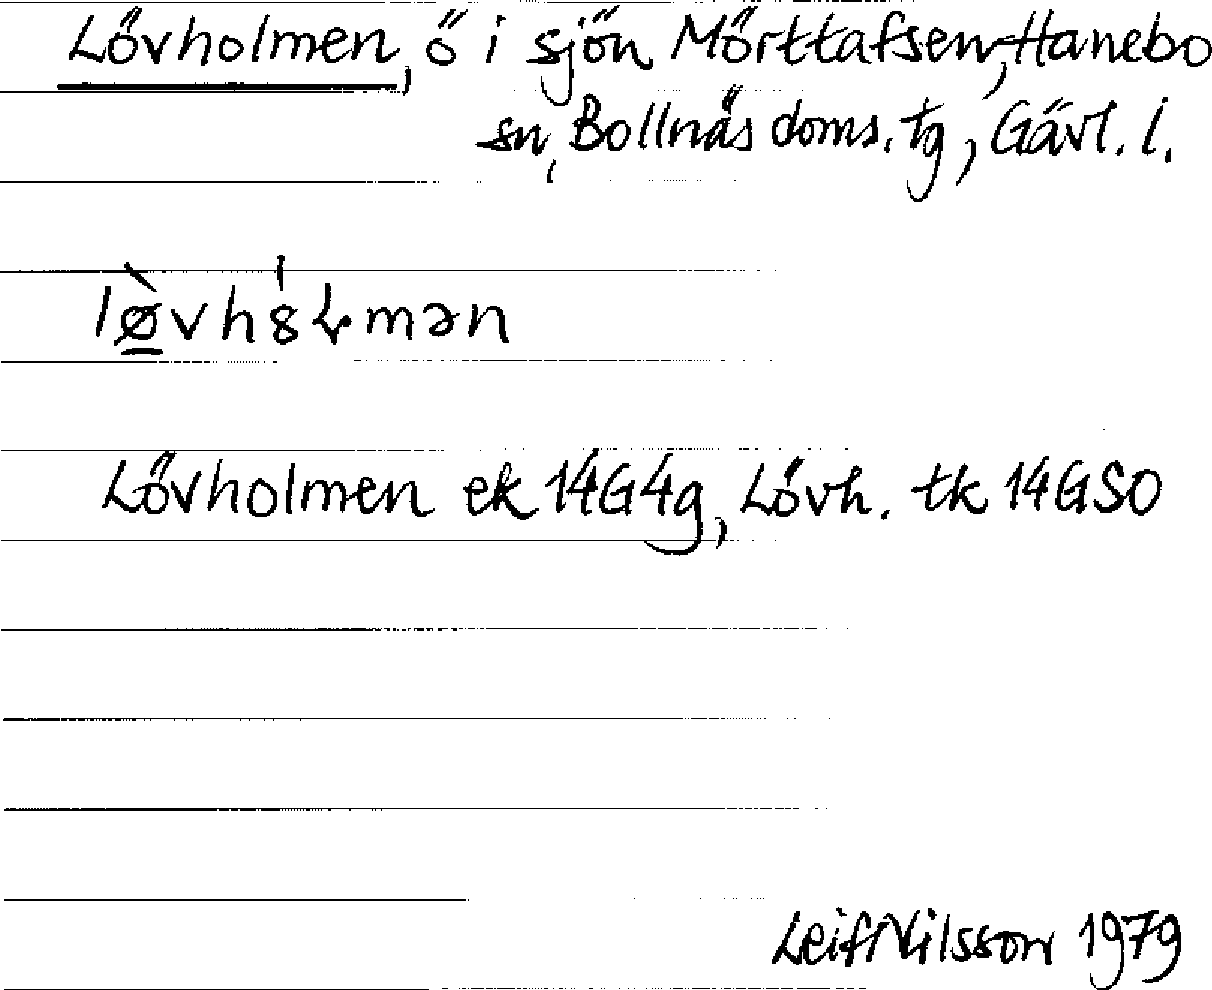 Lövholmen, ö i sjön Mörttafsen, Hanebo
sn, Bollnäs doms. tg, Gävl. l.
Lövholmen ek 14G4g, Lövh. tk 14GSO
Leif Nilsson 1979